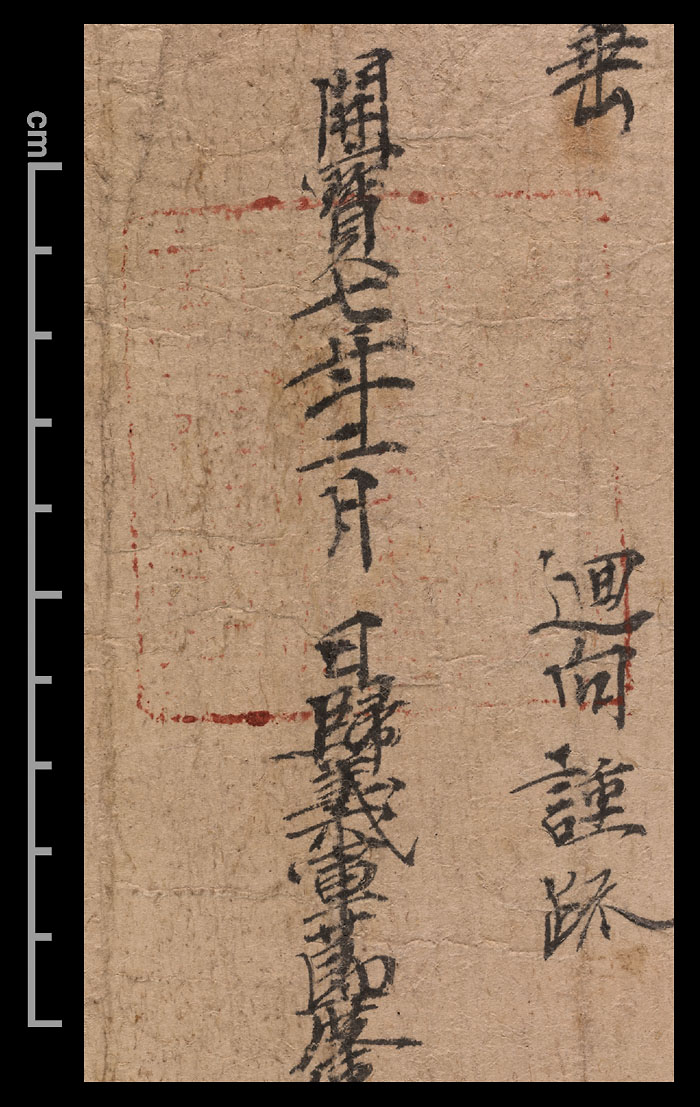 cm
垂
迴向謹疏
開寶七年二月 日歸義軍節度